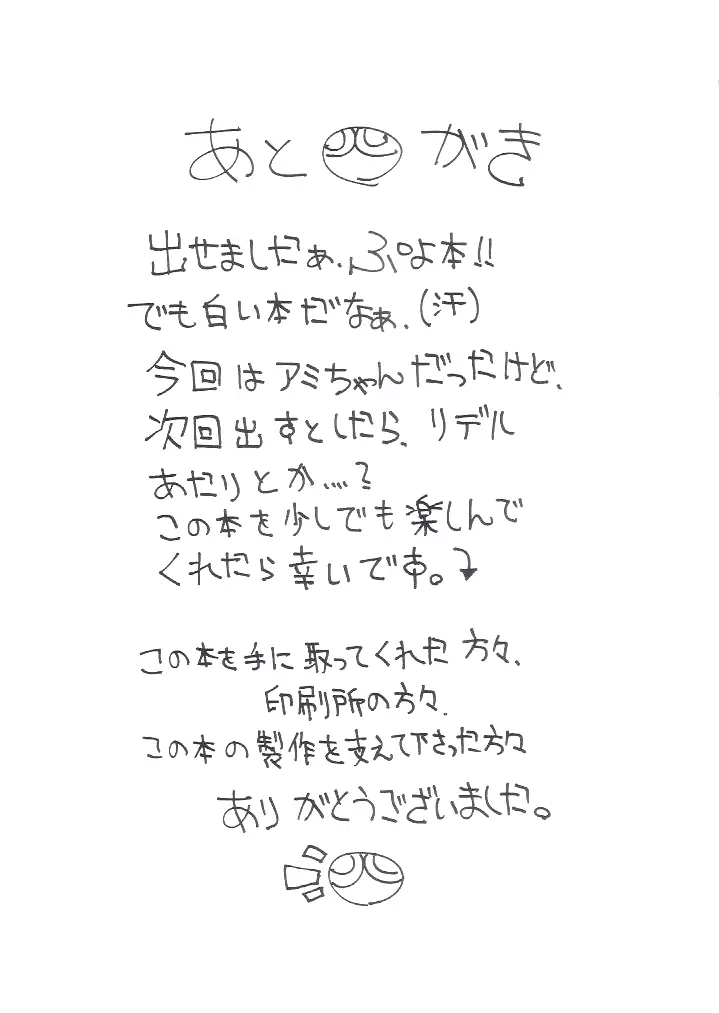 あとがき
出せましたぁ、ぷよ本!!
でも白い本だなぁ、(汗)
今回はアミちゃんだったけど、
次回出すとしたら、リデル
あたりとか....?
この本を少しでも楽しんで
くれたら幸いです。
この本を手に取ってくれた方々、
印刷所の方々、
この本の製作を支えて下さった方々
ありがとうございました。